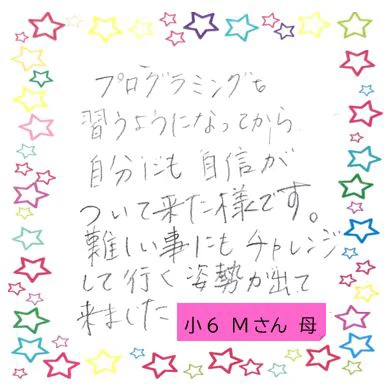 プログラミングも
習うようになってから
自分にも自信が
ついて来た様です。
難しい事にもチャレンジ
して行く姿勢が出て
来ました
小6 Mさん 母